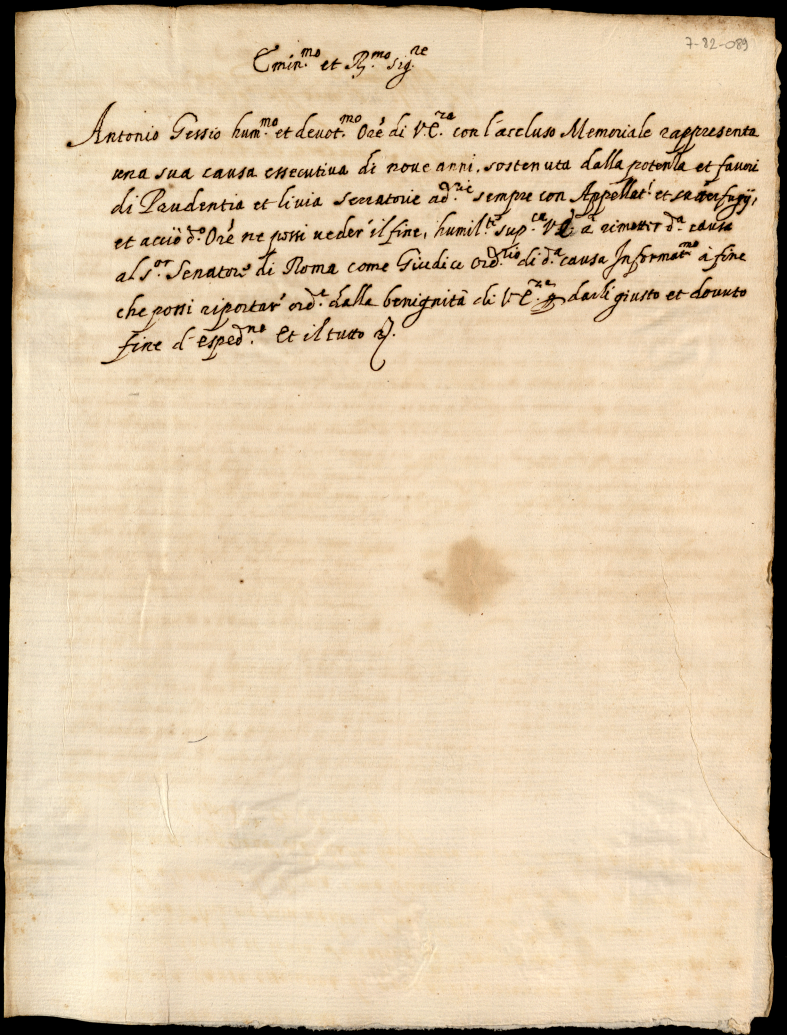 7-82-089
Emin.mo et R.mo Sig.re
Antonio Gessio hum.mo et devot.mo Ore di V.E.za con l'accluso Memoriale rappresenta
una sua causa essecutiva di nove anni, sostenuta dalla potenza et favori
di Prudentia et livia Serratorie sempre con Appellat.i et sutterfugij,
et acciò d.o Ore ne possi veder il fine, humil.te sup.ca V.E. à rimetter d.a causa
al S.or Senatore di Roma come Giudice Ord.rio di d.a causa Informat.mo à fine
che possi riportar ord.e dalla benignità di V.E.za darli giusto et dovuto
fine d'esped.ne Et il tutto